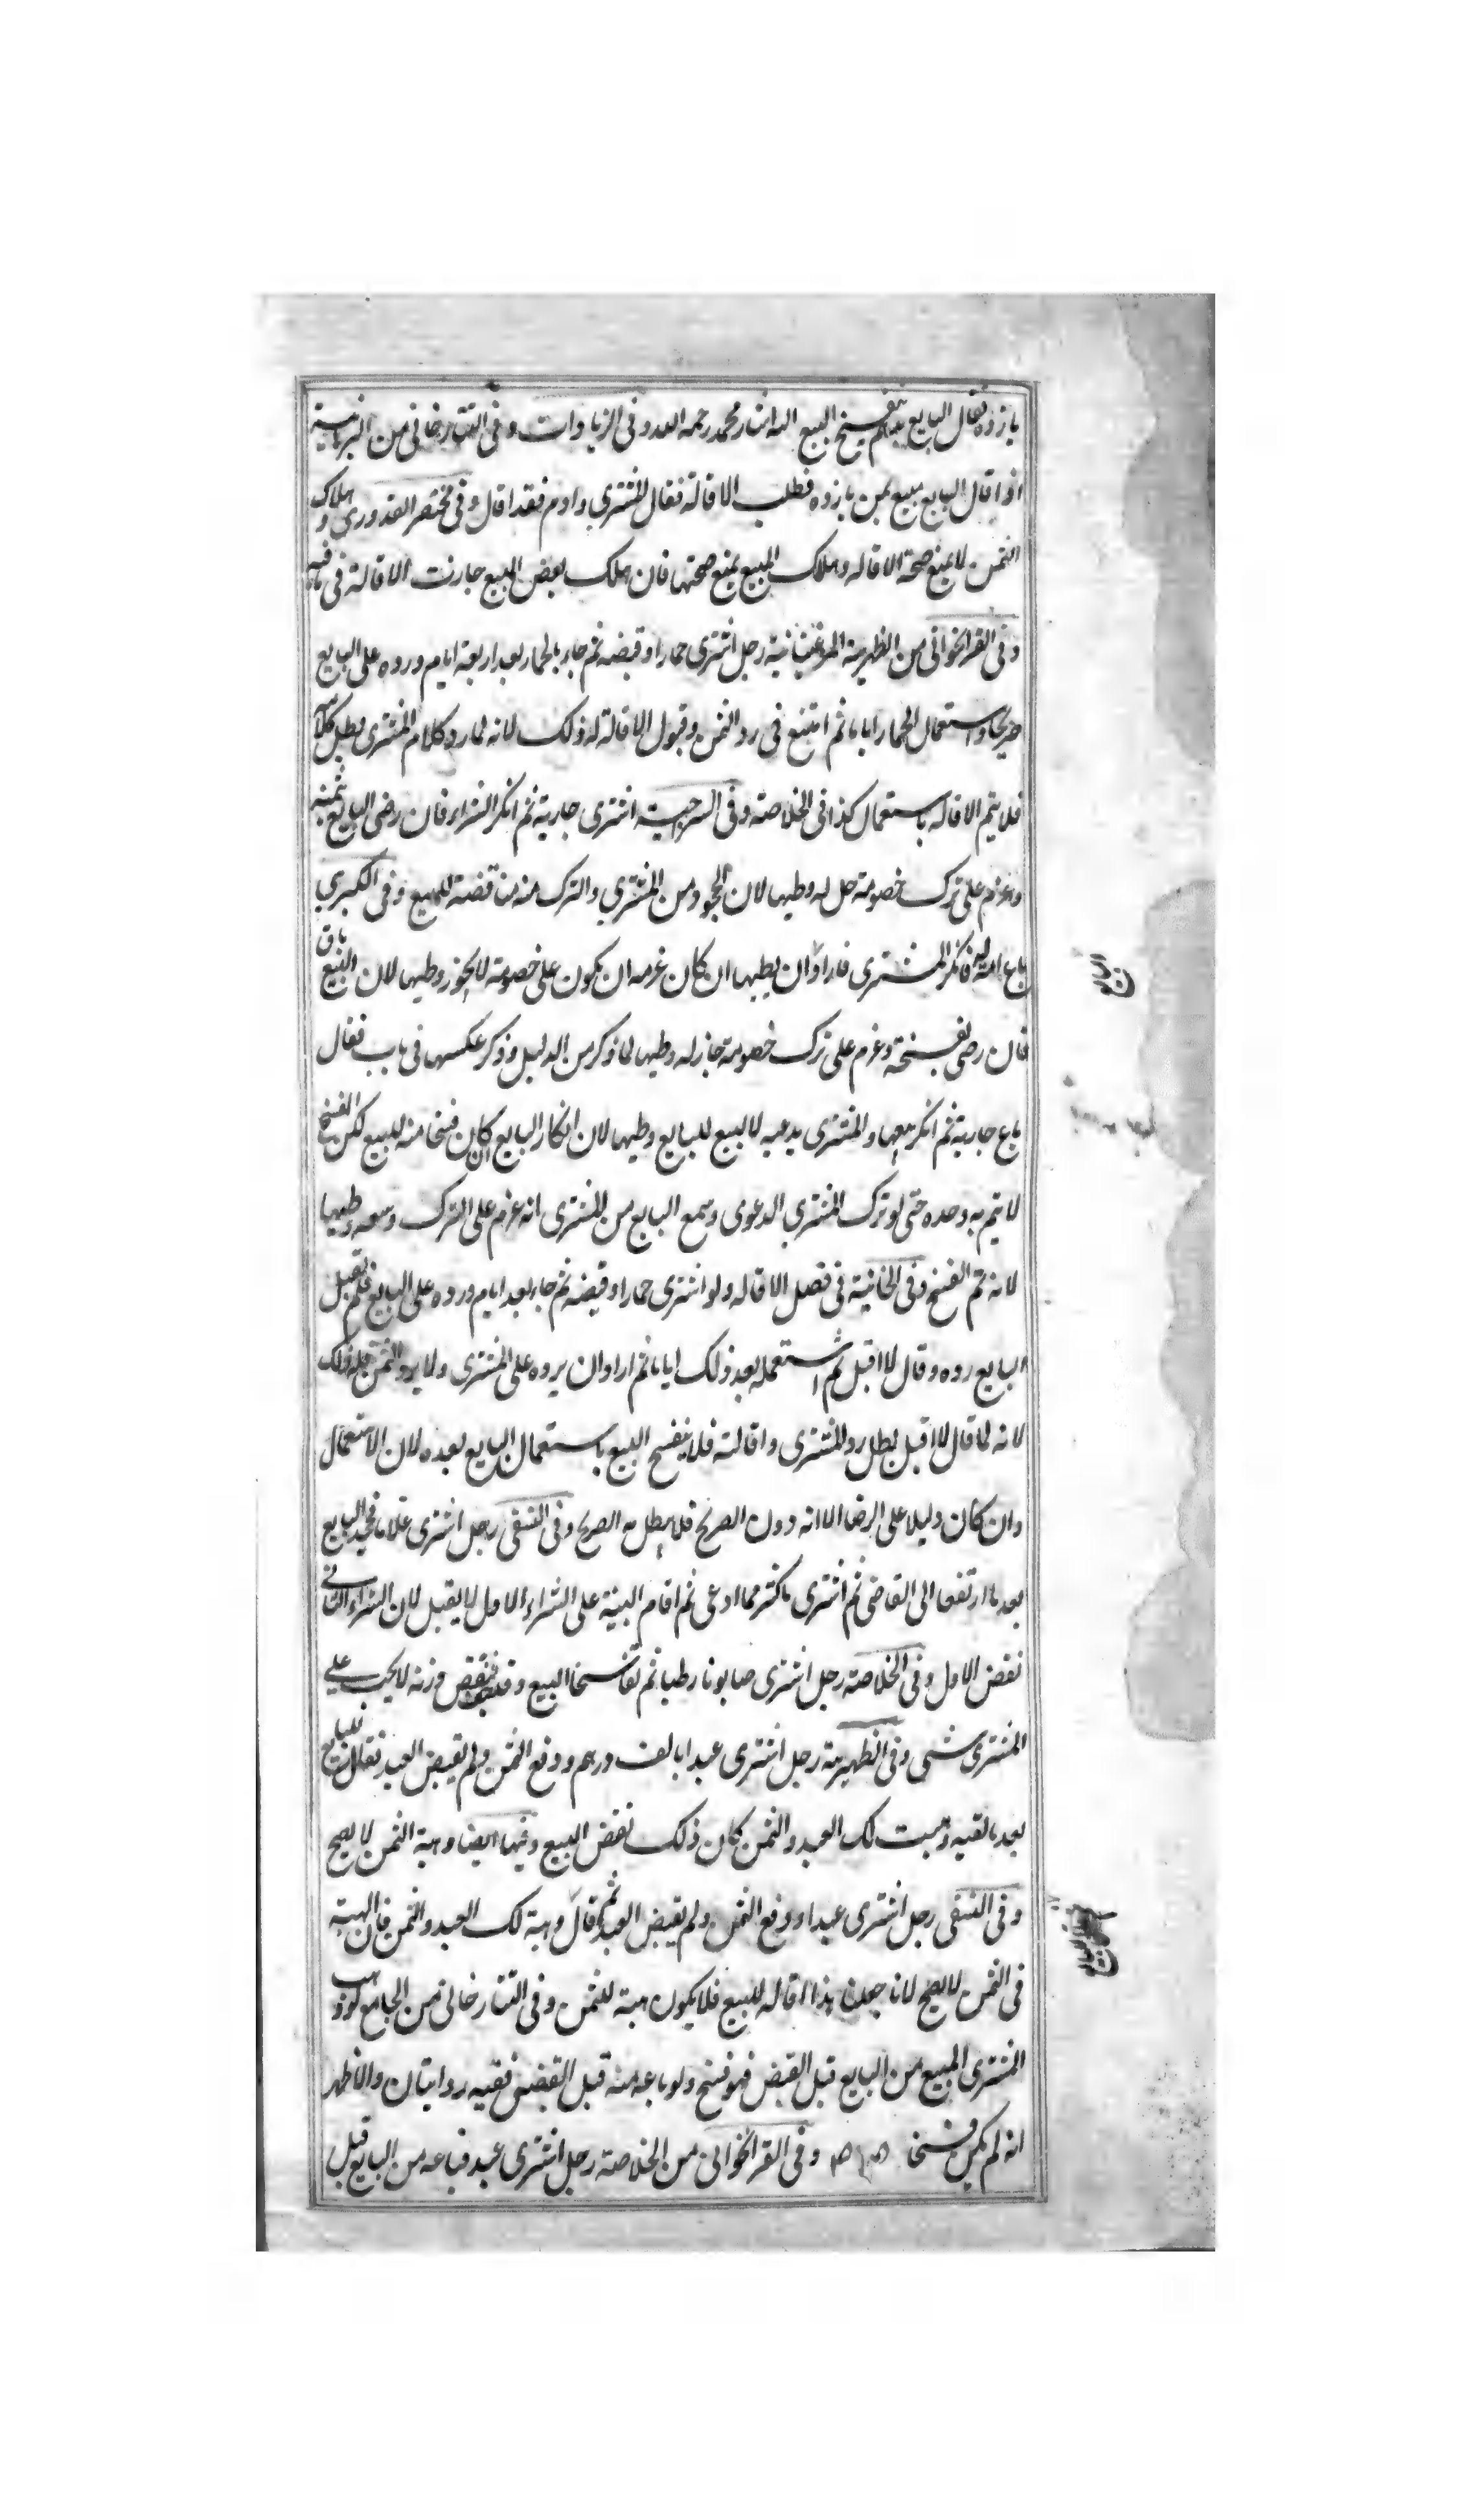 بازده فقال البايع ينفسخ البيع اليه اشار محمد رحمه الله وفى الزيادات وفى التتارخانى من
اذا قال البايع مبيع بمن بازده فطلب الاقالة فقال المشترى دادم فقد اقال وفى مختصر القدورى وهلاك
الثمن لا يمنع صحة الاقاله وهلاك المبيع يمنع صحتها فان هلك بعض المبيع جازت الاقالة فى باقيه
وفى القراخوانى من الظهيرية رجل اشترى حمارا وقبضه ثم جاء بالحمار بعد اربعة ايام ورده على البايع
صريحا واستعمال الحمار اياما ثم امتنع فى رد الثمن وقبول الاقالة له ذلك لانه لما رد كلام المشترى بطل كلامه
فلا يتم الاقاله باستعمال كذا فى الخلاصة وفى السراجية اشترى جارية ثم انكر الشراء فان رضى البايع
وعزم على ترك خصومة حل له وطيها لان الجحود من المشترى والترك منه مناقضة للبيع وفى الكبرى
باع امته فانكر المشترى فاراد ان يطيها ان كان عزمه ان يكون على خصومة لا يجوز وطيها لان البيع باق
فان رضى بفسخه وعزم على ترك خصومة جاز له وطيها لما ذكر من الدليل وذكر عكسها فى باب فقال
باع جارية ثم انكر بيعها والمشترى يدعيه لا يسع للبايع وطيها لان انكار البايع ان كان فسخا منه للبيع لكن الفسخ
لا يتم به وحده حتى لو ترك المشترى الدعوى وسمع البايع من المشترى انه عزم على الترك وسعه وطيها
لانه تم الفسخ وفى الخانية فى فصل الاقاله ولو اشترى حمارا وقبضه ثم جاء بعد ايام ورده على البايع فلم يقبل
البايع رده وقال لا اقبل ثم استعمله بعد ذلك اياما ثم اراد ان يرده على المشترى ولا يرد الثمن فله ذلك
لانه لما قال لا اقبل بطل رد المشترى واقالته فلا ينفسخ البيع باستعمال البايع بعده لان الاستعمال
وان كان دليلا على الرضا الا انه دون الصريح فلا يبطل به الصريح وفى المنتقى رجل اشترى غلاما فجحد البايع
بعد ما ارتفعا الى القاضى ثم اشترى باكثر مما ادعى ثم اقام البينة على الشراء الاول لا يقبل لان الشراء الثانى
نقض الاول وفى الخلاصة رجل اشترى صابونا رطبا ثم تفاسخا البيع وقد نقص وزنه لا يجب على
المشترى شى وفى الظهيرية رجل اشترى عبدا بالف درهم ودفع الثمن ولم يقبض العبد فقال للبايع
بعد ما لقيه وهبت لك العبد والثمن كان ذلك نقض البيع وفيها ايضا وهبة الثمن لا يصح
وفى المنتقى رجل اشترى عبدا ودفع الثمن ولم يقبض العبد ثم قال وهبة لك العبد والثمن فان الهبة
فى الثمن لا يصح لانا جعلنا هذا اقالة للبيع فلا يكون هبة للثمن وفى التتارخانى من الجامع لو وهب
المشترى المبيع من البايع قبل القبض فهو فسخ ولو باعه منه قبل القبض ففيه روايتان والاظهر
انه لم يكن فسخا وفى القراخوانى من الخلاصة رجل اشترى عبد فباعه من البايع قبل